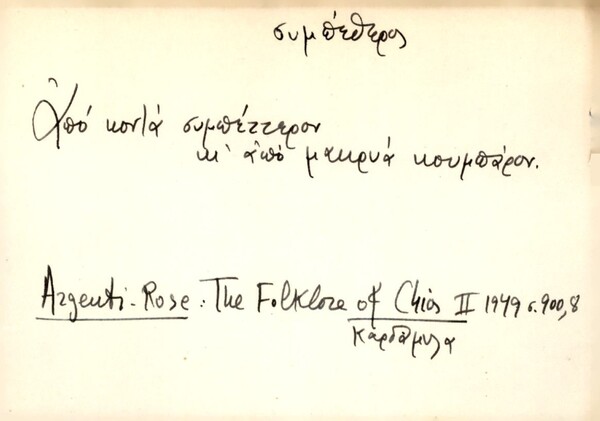 συμπέθερος
Ἀπό κοντά συμπέττερον
κι' ἀπό μακρυά κουμπάρον.
Argenti-Rose: The Folklore of Chios II 1949 σ. 900, 8
Καρδάμυλα